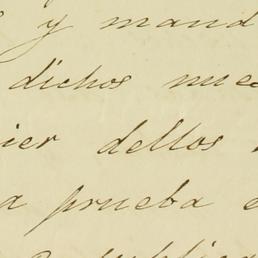 y mand
dichos nue
ier dellos
a prueba e